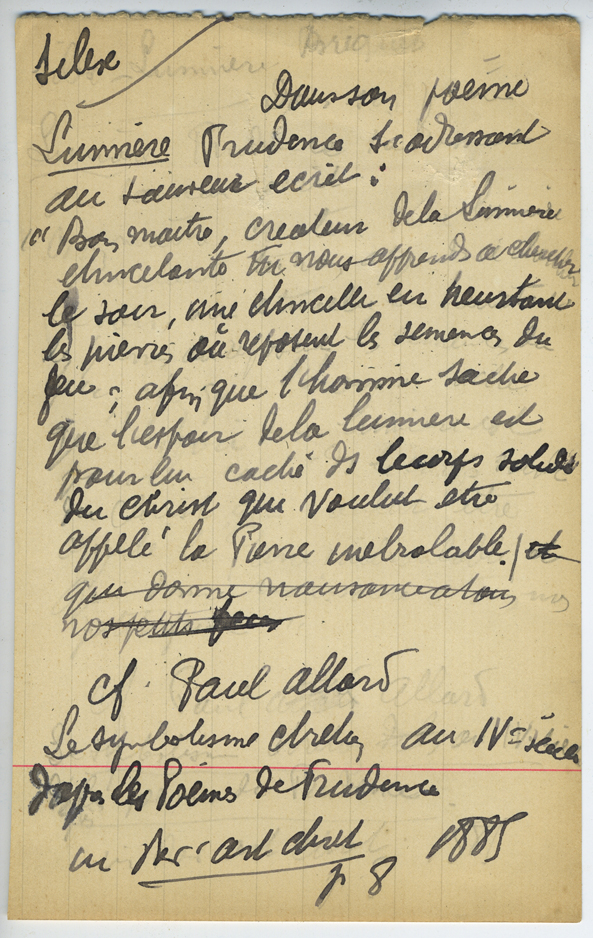 Silex
Dans son poème
Lumière Prudence s'adressant
au sauveur ecrit :
"Bon maitre, createur de la Lumière
etincelante tu nous apprends a chercher
le soir, une etincelle en heurtant
les pierres où reposent les semences du
feu ; afin que l'homme sache
que l'espoir de la lumiere est
pour lui caché ds le corps solide
du Christ qui voulut etre
appelé la Pierre inebrolable / et
qui donne naissance a tous
nos petits feux
cf. Paul Allard
Le symbolisme chretien au IVe siecle
d'apres les Poèmes de Prudence
in Rev. art chret 1885
p 8